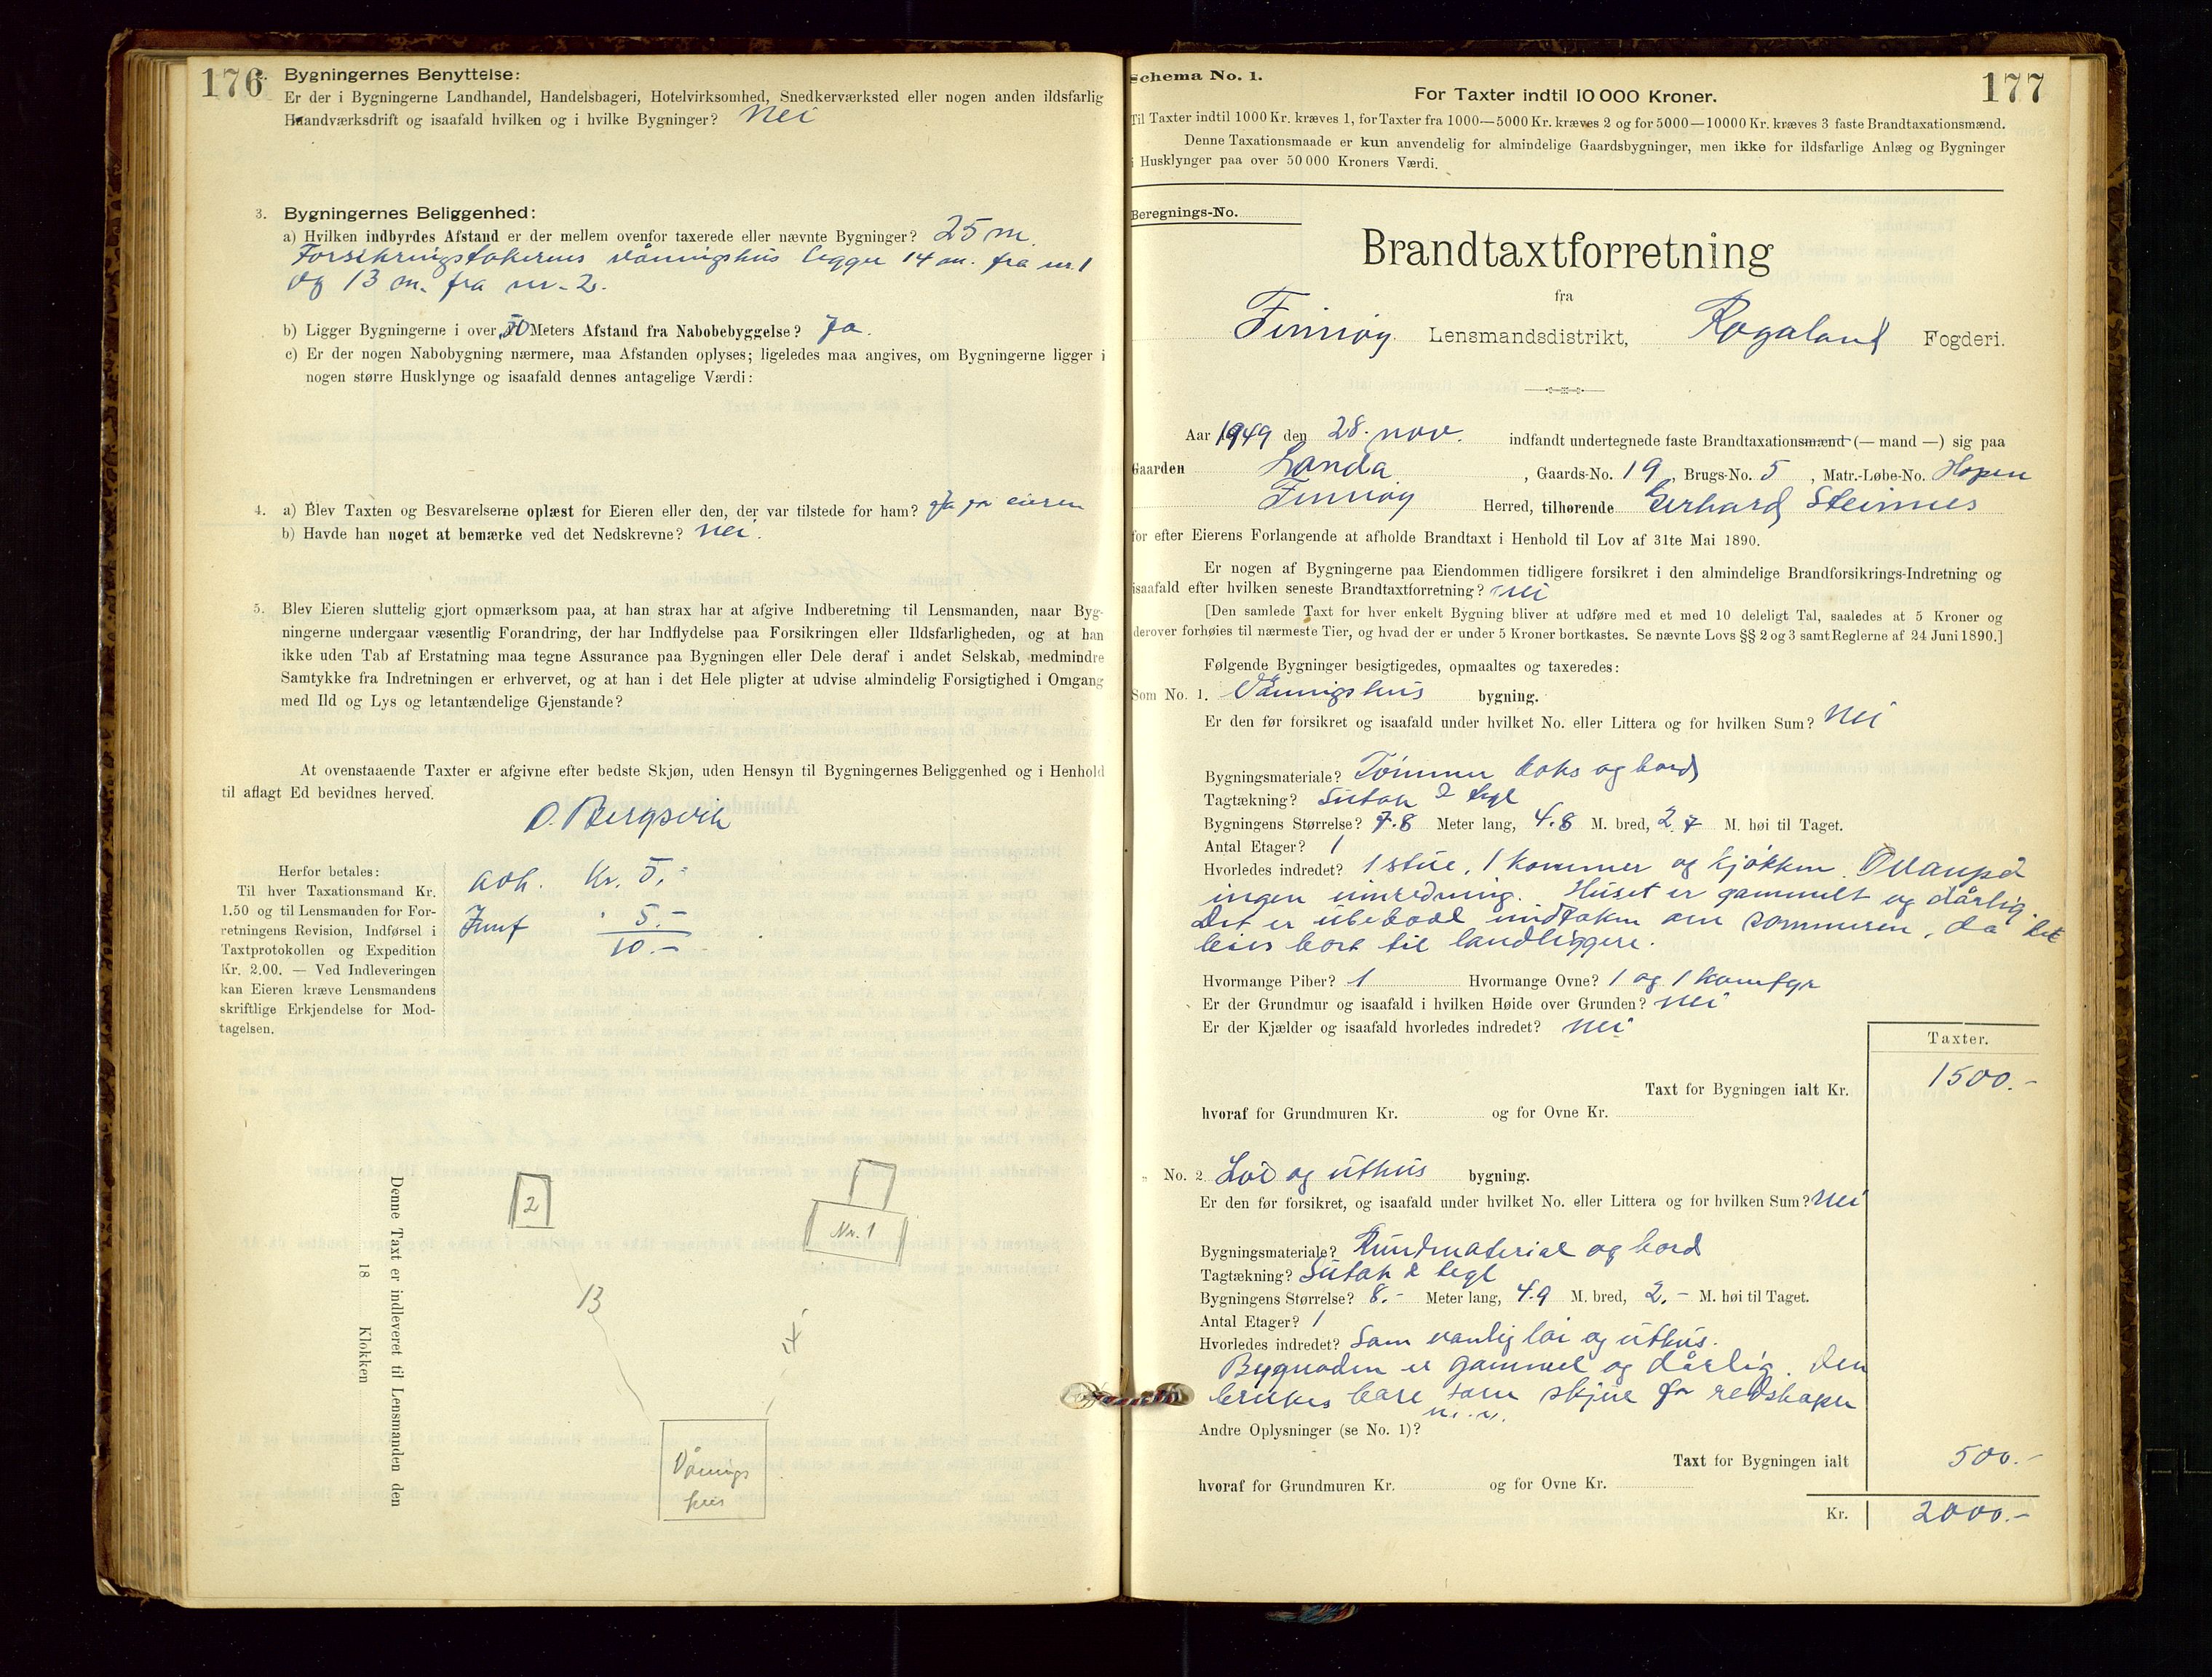 176
2. Bygningernes Benyttelse:
Er der i Bygningerne Landhandel, Handelsbageri, Hotelvirksomhed, Snedkerværksted eller nogen anden ildsfarlig
Haandværksdrift og isaafald hvilken og i hvilke Bygninger? Nei
3. Bygningernes Beliggenhed:
a) Hvilken indbyrdes Afstand er der mellem ovenfor taxerede eller nævnte Bygninger? 25 m.
Forsikringstakerens våningshus ligger 14 m. fra nr. 1
og 13 m. fra nr. 2.
b) Ligger Bygningerne i over 50 Meters Afstand fra Nabobebyggelse? Ja.
c) Er der nogen Nabobygning nærmere, maa Afstanden oplyses; ligeledes maa angives, om Bygningerne ligger i
nogen større Husklynge og isaafald dennes antagelige Værdi:
4. a) Blev Taxten og Besvarelserne oplæst for Eieren eller den, der var tilstede for ham? Ja for eieren
b) Havde han noget at bemærke ved det Nedskrevne? nei.
5. Blev Eieren sluttelig gjort opmærksom paa, at han strax har at afgive Indberetning til Lensmanden, naar Byg-
ningerne undergaar væsentlig Forandring, der har Indflydelse paa Forsikringen eller Ildsfarligheden, og at han
ikke uden Tab af Erstatning maa tegne Assurance paa Bygningen eller Dele deraf i andet Selskab, medmindre
Samtykke fra Indretningen er erhvervet, og at han i det Hele pligter at udvise almindelig Forsigtighed i Omgang
med Ild og Lys og letantændelige Gjenstande?
At ovenstaaende Taxter er afgivne efter bedste Skjøn, uden Hensyn til Bygningernes Beliggenhed og i Henhold
til aflagt Ed bevidnes herved.
O. Bergsvik
Herfor betales:
Til hver Taxationsmand Kr.
1.50 og til Lensmanden for For-
retningens Revision, Indførsel i
Taxtprotokollen og Expedition
Kr. 2.00. — Ved Indleveringen
kan Eieren kræve Lensmandens
skriftlige Erkjendelse for Mod-
tagelsen.
Kr. 5.-
5.-
10.-
Denne Taxt er indleveret til Lensmanden den
18 Klokken
2
Nr. 1
13
Vånings
hus
177
Schema No. 1.
For Taxter indtil 10 000 Kroner.
Til Taxter indtil 1000 Kr. kræves 1, for Taxter fra 1000—5000 Kr. kræves 2 og for 5000—10000 Kr. kræves 3 faste Brandtaxationsmænd.
Denne Taxationsmaade er kun anvendelig for almindelige Gaardsbygninger, men ikke for ildsfarlige Anlæg og Bygninger
i Husklynger paa over 50 000 Kroners Værdi.
Beregnings-No.
Brandtaxtforretning
fra
Finnøy Lensmandsdistrikt, Rogaland Fogderi.
Aar 1949 den 28. nov. indfandt undertegnede faste Brandtaxationsmænd (— mand —) sig paa
Gaarden Landa, Gaards-No. 19, Brugs-No. 5, Matr.-Løbe-No. Hopen
Finnøy Herred, tilhørende Gerhard Steinnes
for efter Eierens Forlangende at afholde Brandtaxt i Henhold til Lov af 31te Mai 1890.
Er nogen af Bygningerne paa Eiendommen tidligere forsikret i den almindelige Brandforsikrings-Indretning og
isaafald efter hvilken seneste Brandtaxtforretning? nei
[Den samlede Taxt for hver enkelt Bygning bliver at udføre med et med 10 deleligt Tal, saaledes at 5 Kroner og
derover forhøies til nærmeste Tier, og hvad der er under 5 Kroner bortkastes. Se nævnte Lovs §§ 2 og 3 samt Reglerne af 24 Juni 1890.]
Følgende Bygninger besigtigedes, opmaaltes og taxeredes:
Som No. 1. Våningshus bygning.
Er den før forsikret og isaafald under hvilket No. eller Littera og for hvilken Sum? Nei
Bygningsmateriale? Tømmer og bord
Tagtækning? Sutak & tegl
Bygningens Størrelse? 7.8 Meter lang, 4.8 M. bred, 2.7 M. høi til Taget.
Antal Etager? 1
Hvorledes indredet? 1 stue, 1 kammer og kjøkken.
ingen innredning. Huset er gammelt og dårlig.
Det er ubebodd undtaken om sommeren, da det
leies bort til landliggere.
Hvormange Piber? 1 Hvormange Ovne? 1 og 1 komfyr
Er der Grundmur og isaafald i hvilken Høide over Grunden? nei
Er der Kjælder og isaafald hvorledes indredet? nei
Taxter.
Taxt for Bygningen ialt Kr. 1500.-
hvoraf for Grundmuren Kr. og for Ovne Kr.
" No. 2 Løe og uthus bygning.
Er den før forsikret, og isaafald under hvilket No. eller Littera og for hvilken Sum? Nei
Bygningsmateriale? Rundmaterial og bord
Tagtækning? Sutak & tegl
Bygningens Størrelse? 8.- Meter lang, 4.9 M. bred, 2.- M. høi til Taget.
Antal Etager? 1
Hvorledes indredet? Som vanlig løe og uthus.
Bygnaden er gammel og dårlig. Den
brukes bare som skjul for redskaper
m.v.
Andre Oplysninger (se No. 1)?
Taxt for Bygningen ialt 500.-
hvoraf for Grundmuren Kr. og for Ovne Kr.
Kr. 2000.-